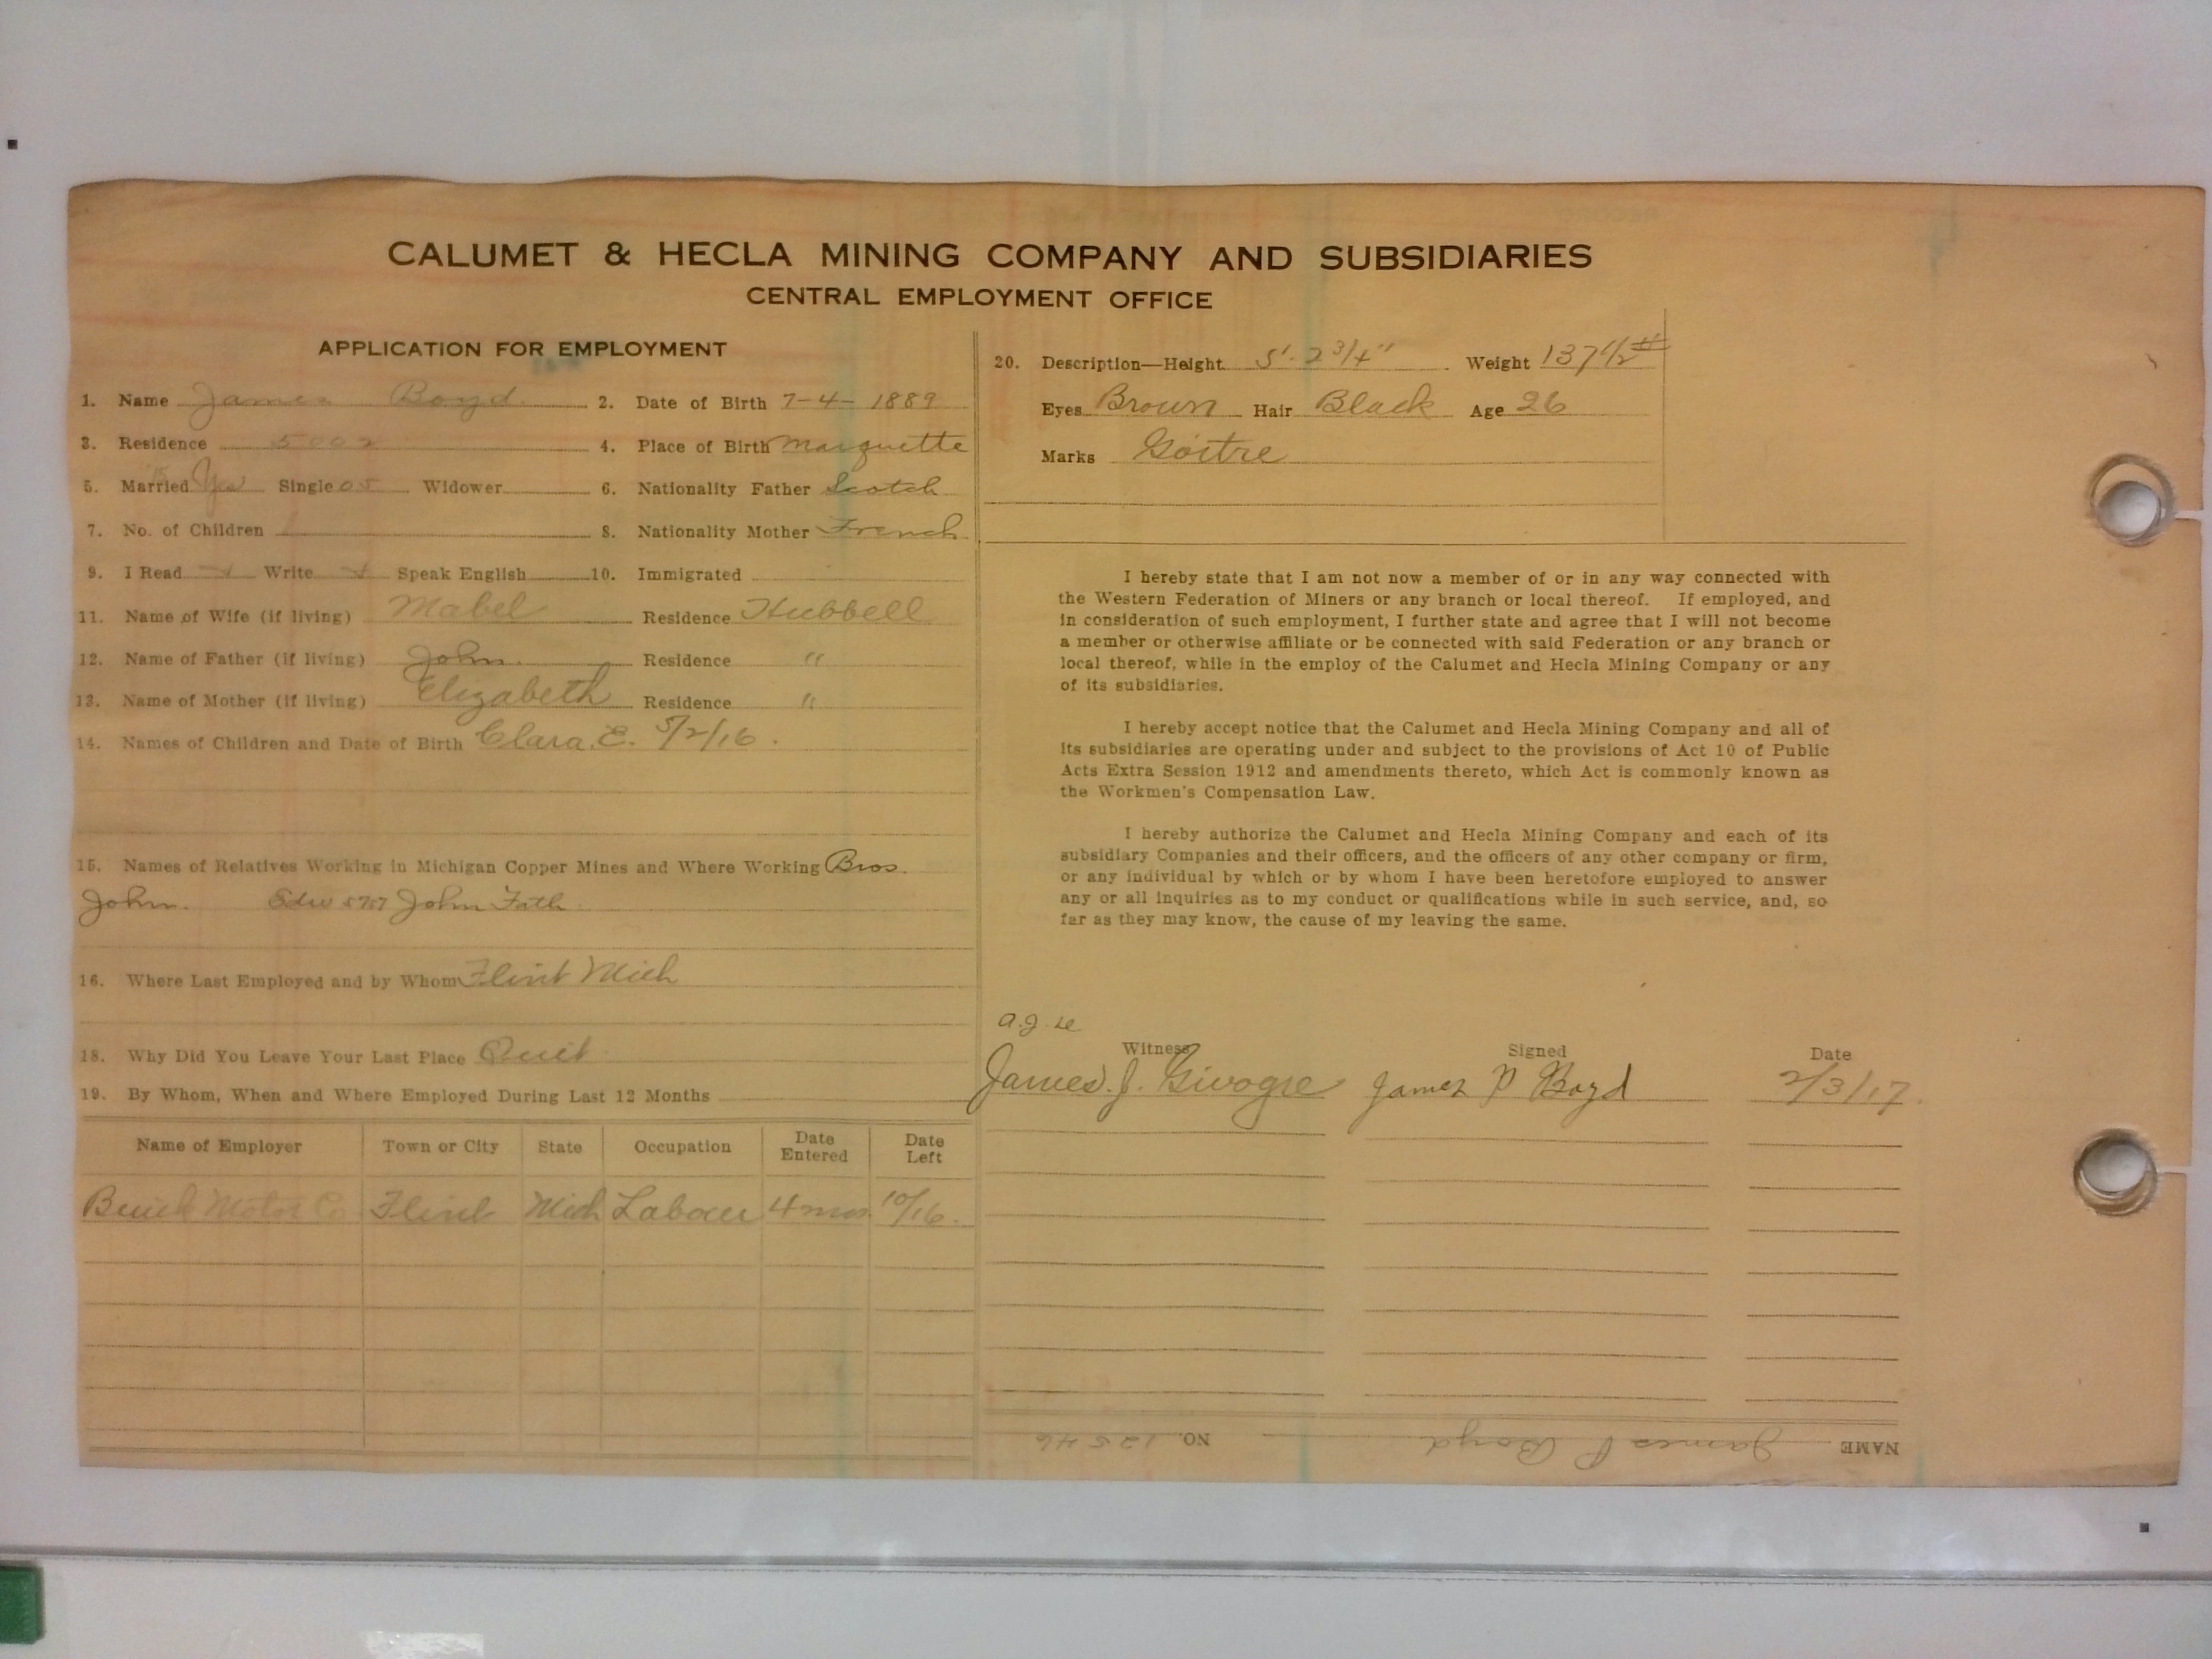 CALUMET & HECLA MINING COMPANY AND SUBSIDIARIES
CENTRAL EMPLOYMENT OFFICE
APPLICATION FOR EMPLOYMENT
1. Name James Boyd 2. Date of Birth 7-4-1889
3. Residence 5002 4. Place of Birth Marquette
5. Married Yes Single Widower 6. Nationality Father Scotch
7. No. of Children 1 8. Nationality Mother French
9. I Read Write Speak English 10. Immigrated
11. Name of Wife (if living) Mabel Residence Hubbell
12. Name of Father (if living) John Residence "
13. Name of Mother (if living) Elizabeth Residence "
14. Names of Children and Date of Birth Clara. E. 5/2/16.
15. Names of Relatives Working in Michigan Copper Mines and Where Working Bros.
John. Edw 5757 John Fath.
16. Where Last Employed and by Whom Flint Mich
18. Why Did You Leave Your Last Place Quit
19. By Whom, When and Where Employed During Last 12 Months
Name of Employer Town or City State Occupation Date Entered Date Left
Buick Motor Co Flint Mich Laborer 4 mos 10/16.
20. Description—Height 5'. 2 3/4" Weight 137 1/2 #
Eyes Brown Hair Black Age 26
Marks Goitre
I hereby state that I am not now a member of or in any way connected with
the Western Federation of Miners or any branch or local thereof. If employed, and
in consideration of such employment, I further state and agree that I will not become
a member or otherwise affiliate or be connected with said Federation or any branch or
local thereof, while in the employ of the Calumet and Hecla Mining Company or any
of its subsidiaries.
I hereby accept notice that the Calumet and Hecla Mining Company and all of
its subsidiaries are operating under and subject to the provisions of Act 10 of Public
Acts Extra Session 1912 and amendments thereto, which Act is commonly known as
the Workmen's Compensation Law.
I hereby authorize the Calumet and Hecla Mining Company and each of its
subsidiary Companies and their officers, and the officers of any other company or firm,
or any individual by which or by whom I have been heretofore employed to answer
any or all inquiries as to my conduct or qualifications while in such service, and, so
far as they may know, the cause of my leaving the same.
Witness Signed Date
James. J. Givogre James P Boyd 2/3/17.
NAME James P Boyd NO. 12546